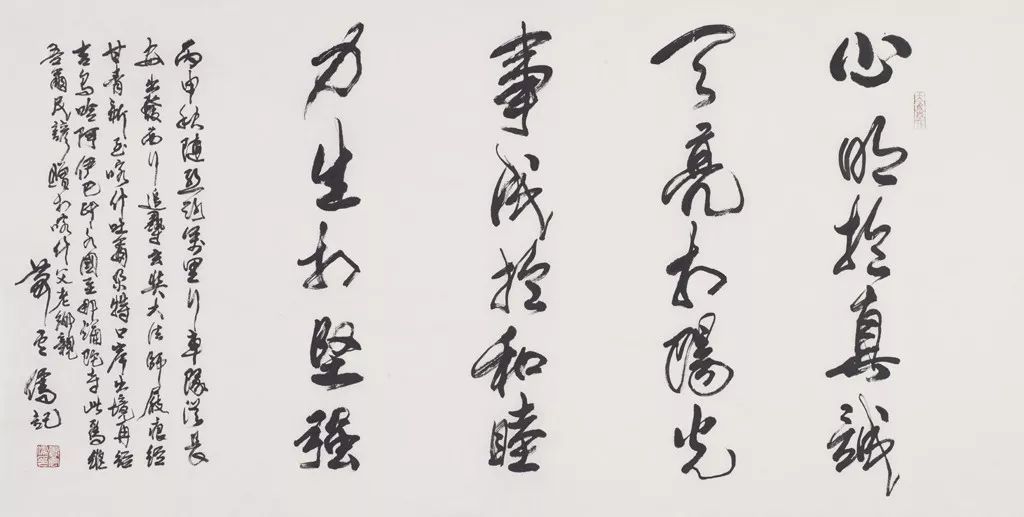 心明於真誠
天亮於陽光
事成於和睦
力生於堅強
丙申秋隨絲路萬里行車隊從長
安出發西行追玄奘大法師屐痕經
甘青新至喀什吐爾尕特口岸出境再經
吉烏哈阿伊巴印國至那爛陀寺此為維
吾爾民諺贈於喀什父老鄉親
蕭雲儒記